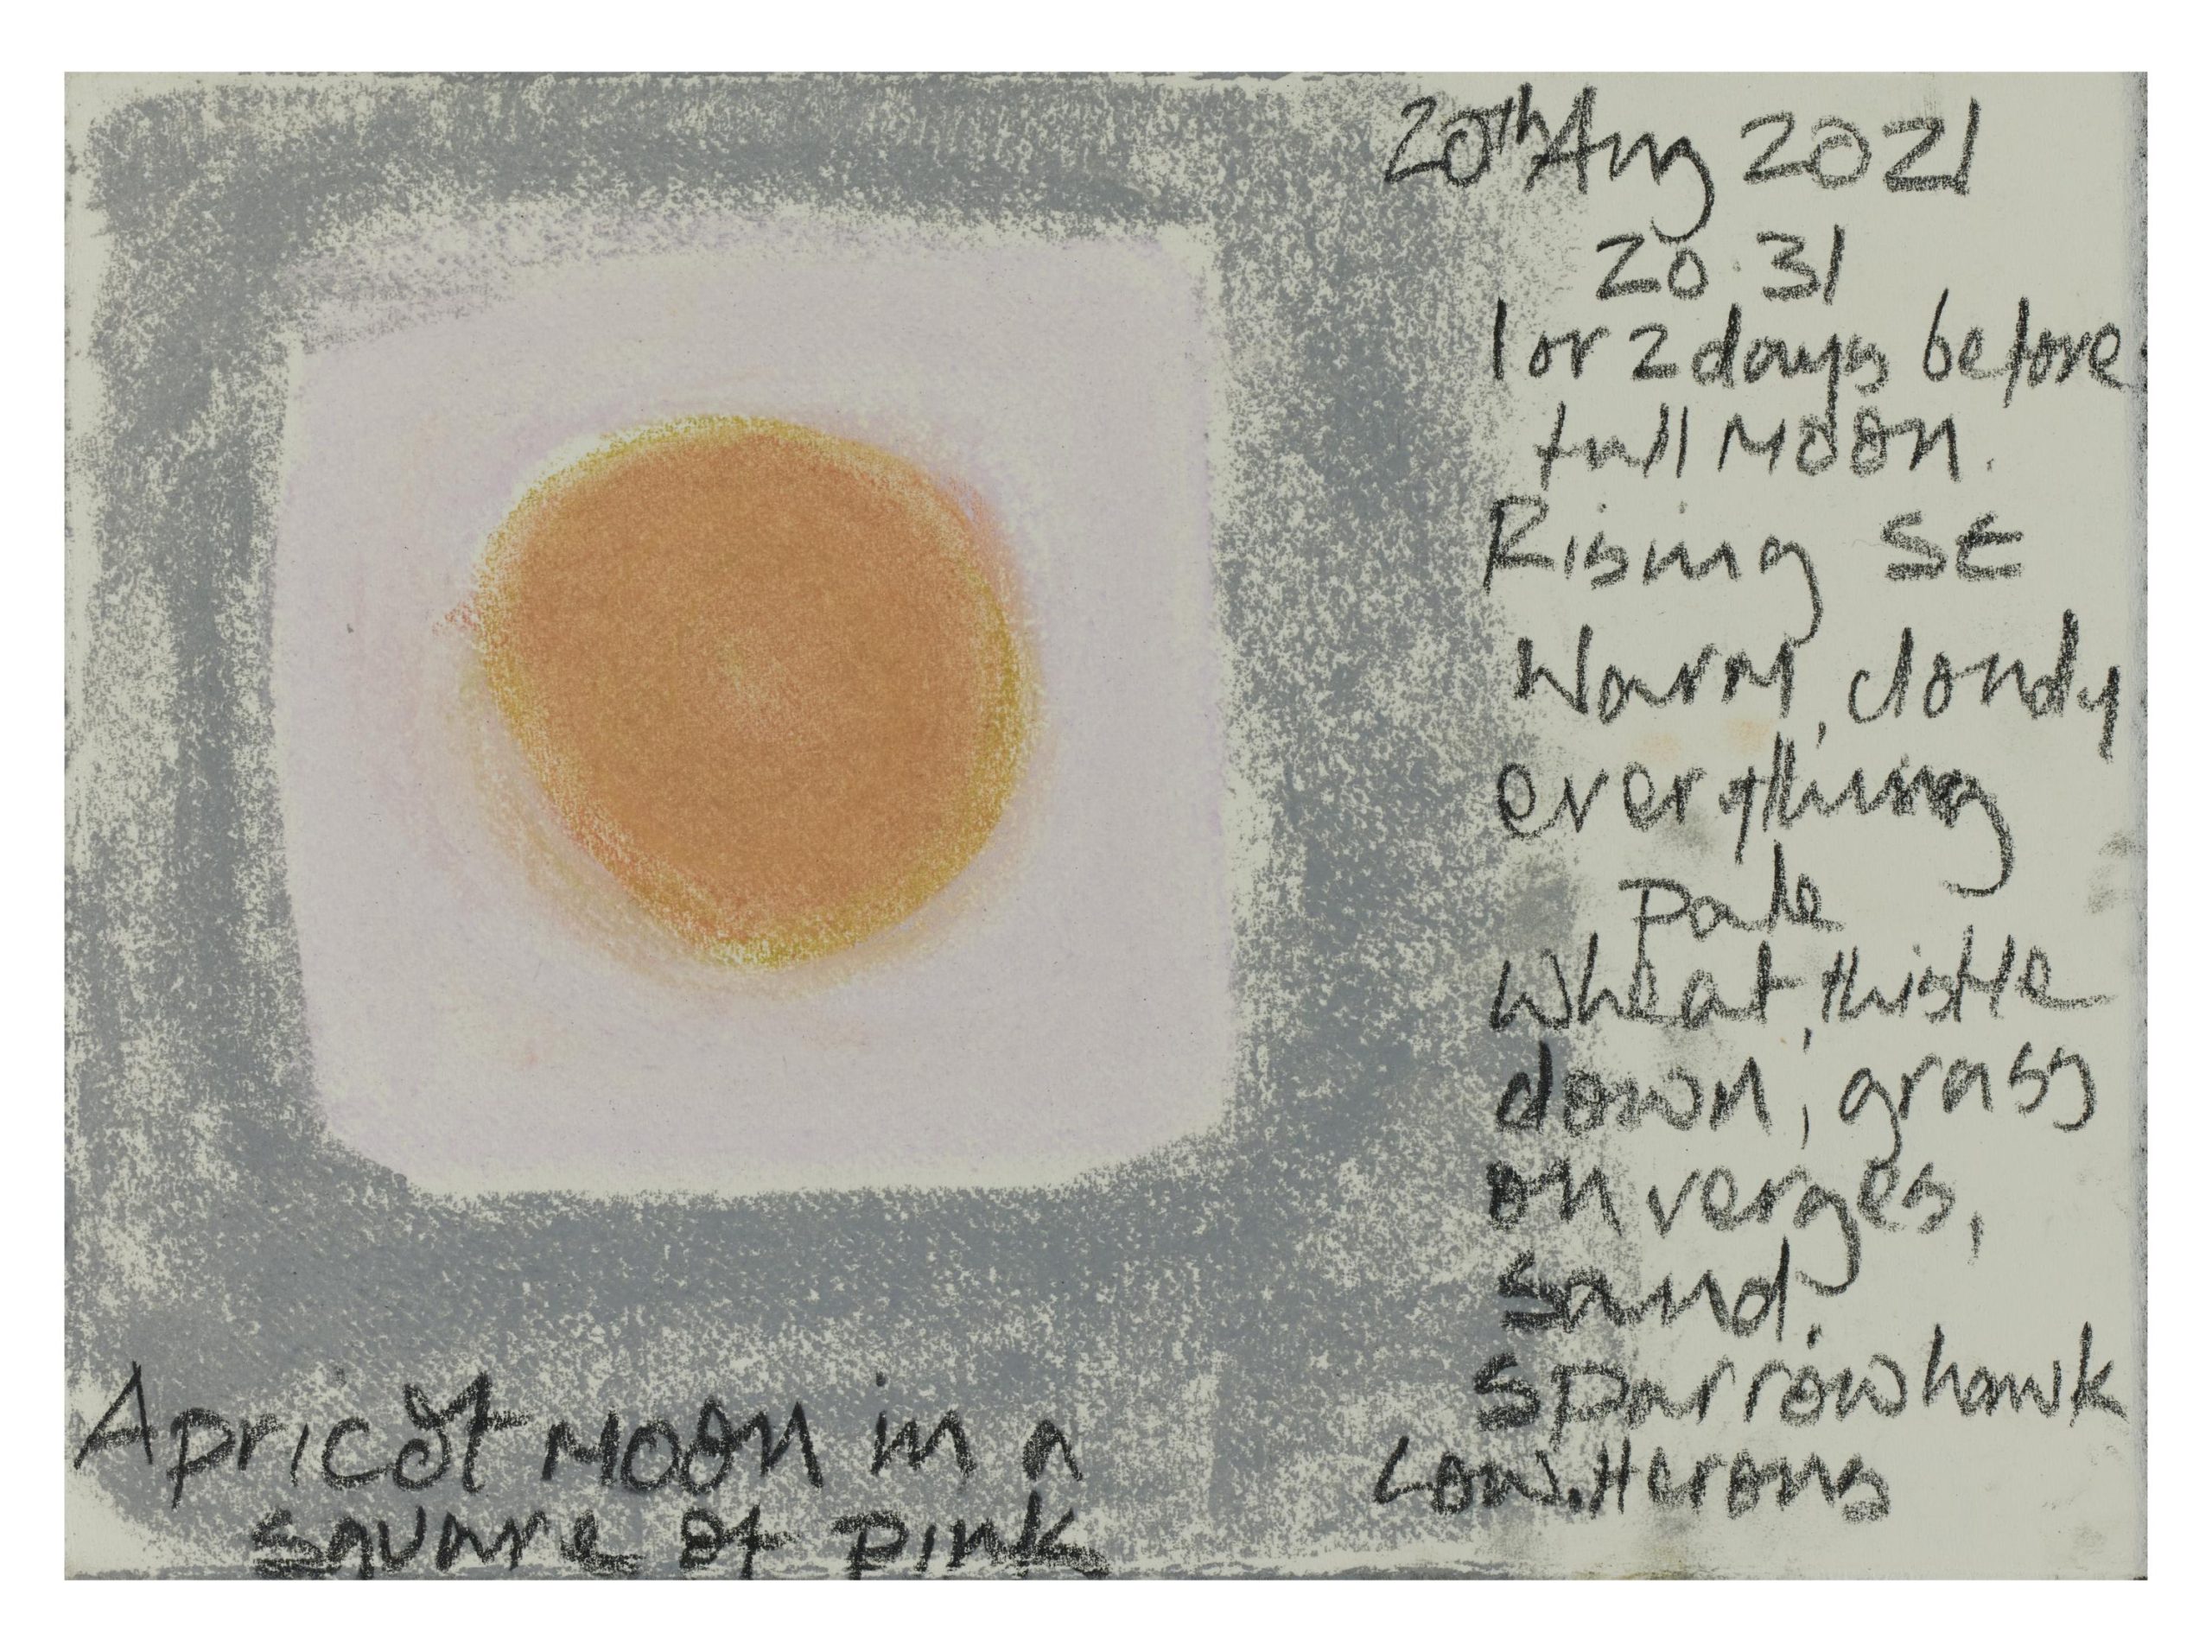 20th Aug 2021
20.31
1 or 2 days before
full Moon.
Rising SE
Warm, cloudy
everything
pale
Wheat, thistle
down, grass
on verges,
sand.
Sparrowhawk
Low. Herons
Apricot Moon in a
square of pink